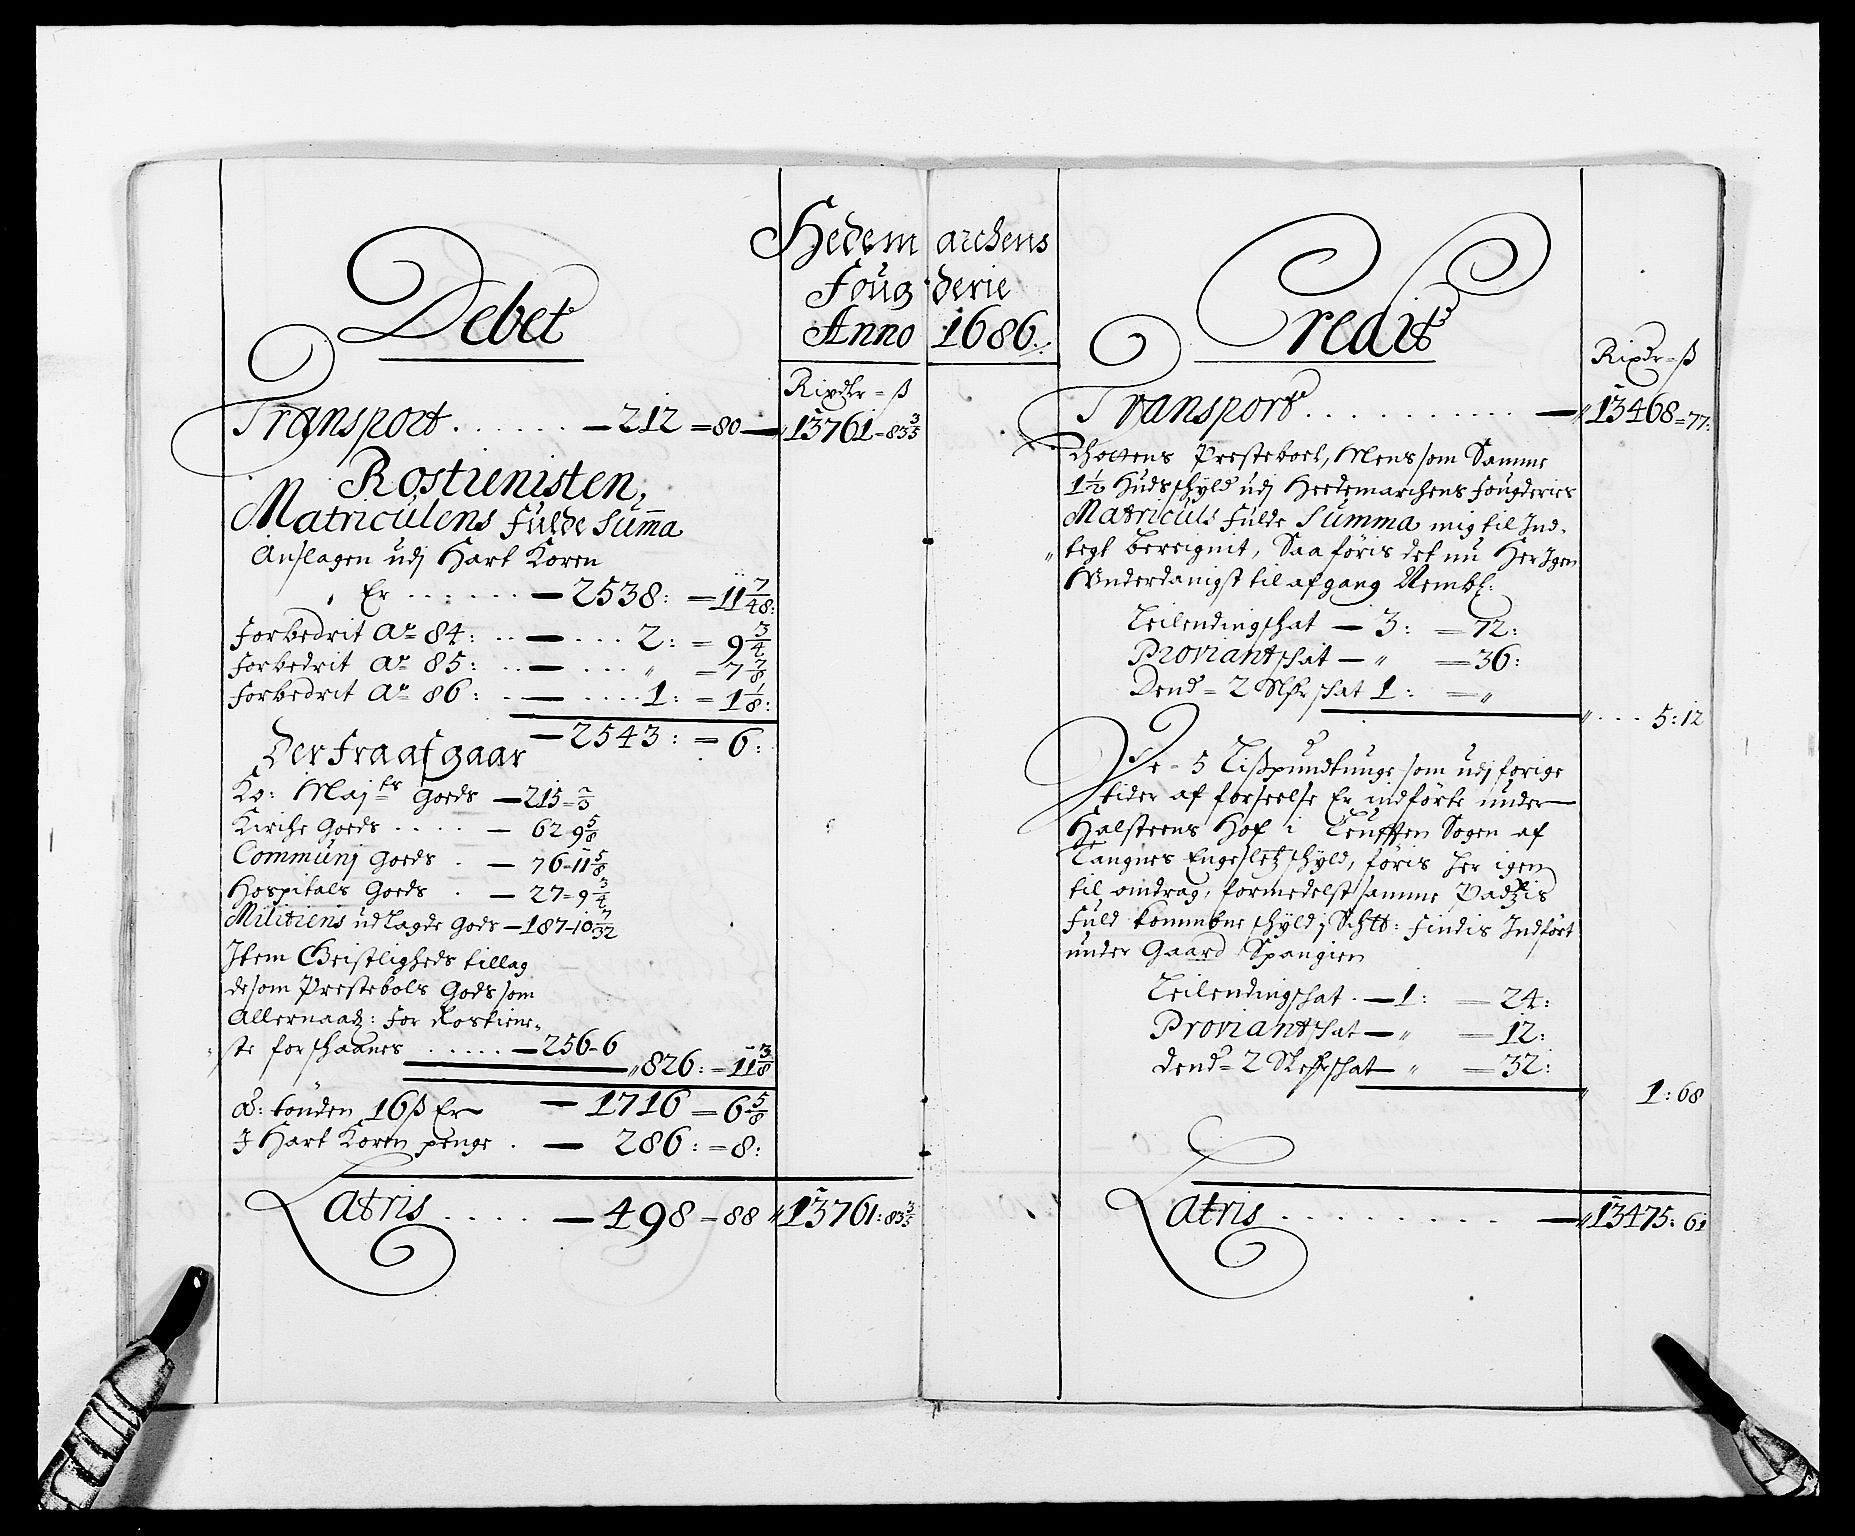 Hedemarchens
Fougderie
Anno 1686.
Debet
Rixdlr = ß
Transport . . . . . . — 212 = 80 — " 13761 = 83 3/5
Rostienisten,
Matriculens Fulde Summa
Anslagen udj Hart Koren
Er . . . . . . — 2538: = 11 7/48:
Forbedrit Ao 84: . . — . . . 2: = 9 3/4
Forbedrit Ao 85: . . — . . . " = 7 7/8
Forbedrit Ao 86: . . — . . . . 1: = 1 1/8:
— 2543: = 6:
Der fra afgaar
Ko: Majts Goeds — 215 = 2/3
Kirche Goeds . . . . — 62 - 9 5/8
Communj Goeds . — 76 - 11 5/8
Hospitals Goeds . — 27 = 9 3/4
Militiens udlagde Gods — 187 - 10 7/32
Item Geistligheds tillag
de som Prestebols Gods som
Allernaad: for Rostiene-
ste forschaanes . . . . . — 256 - 6
" 826: = 11 3/8
tönden 16 ß Er — 1716 = 6 5/8
I Hart Koren penge . — 286: = 8:
Latris . . . . — 498 = 88 " 13761: 83 3/5
Credit
Rixdr = ß
Transport . . . . . . . . . . . — " 13468 = 77:
Presteboel, Mens som Samme
1 1/2 Hudsschyld udj Heedemarchens Fougderies
Matriculs Fulde Summa mig til Ind-
tegt bereignit, Saa föris det nu Her Igen
Underdanigst til afgang Nembl:
Leilendingschat — 3: = 72:
Proviantschat — " = 36:
Dend = 2 schat 1: = "
" . . . 5: 12
De = 5 Lißpundtunge som udj forige
tider af forseelse Er indförte under
Halsteens Hof i Sogen af
Tangnes Engesletz schyld, föris her igen
til omdrag, formedelst samme Padtzis
Fuld kommene schyld j Schtt: Findis Indfört
under Gaard Spangien
Leilendingschat . — 1: = 24:
Proviantschat — " = 12:
Dend = 2 schat — " = 32:
" 1: 68
Latris . . . . . . . . . — " 13475: 61